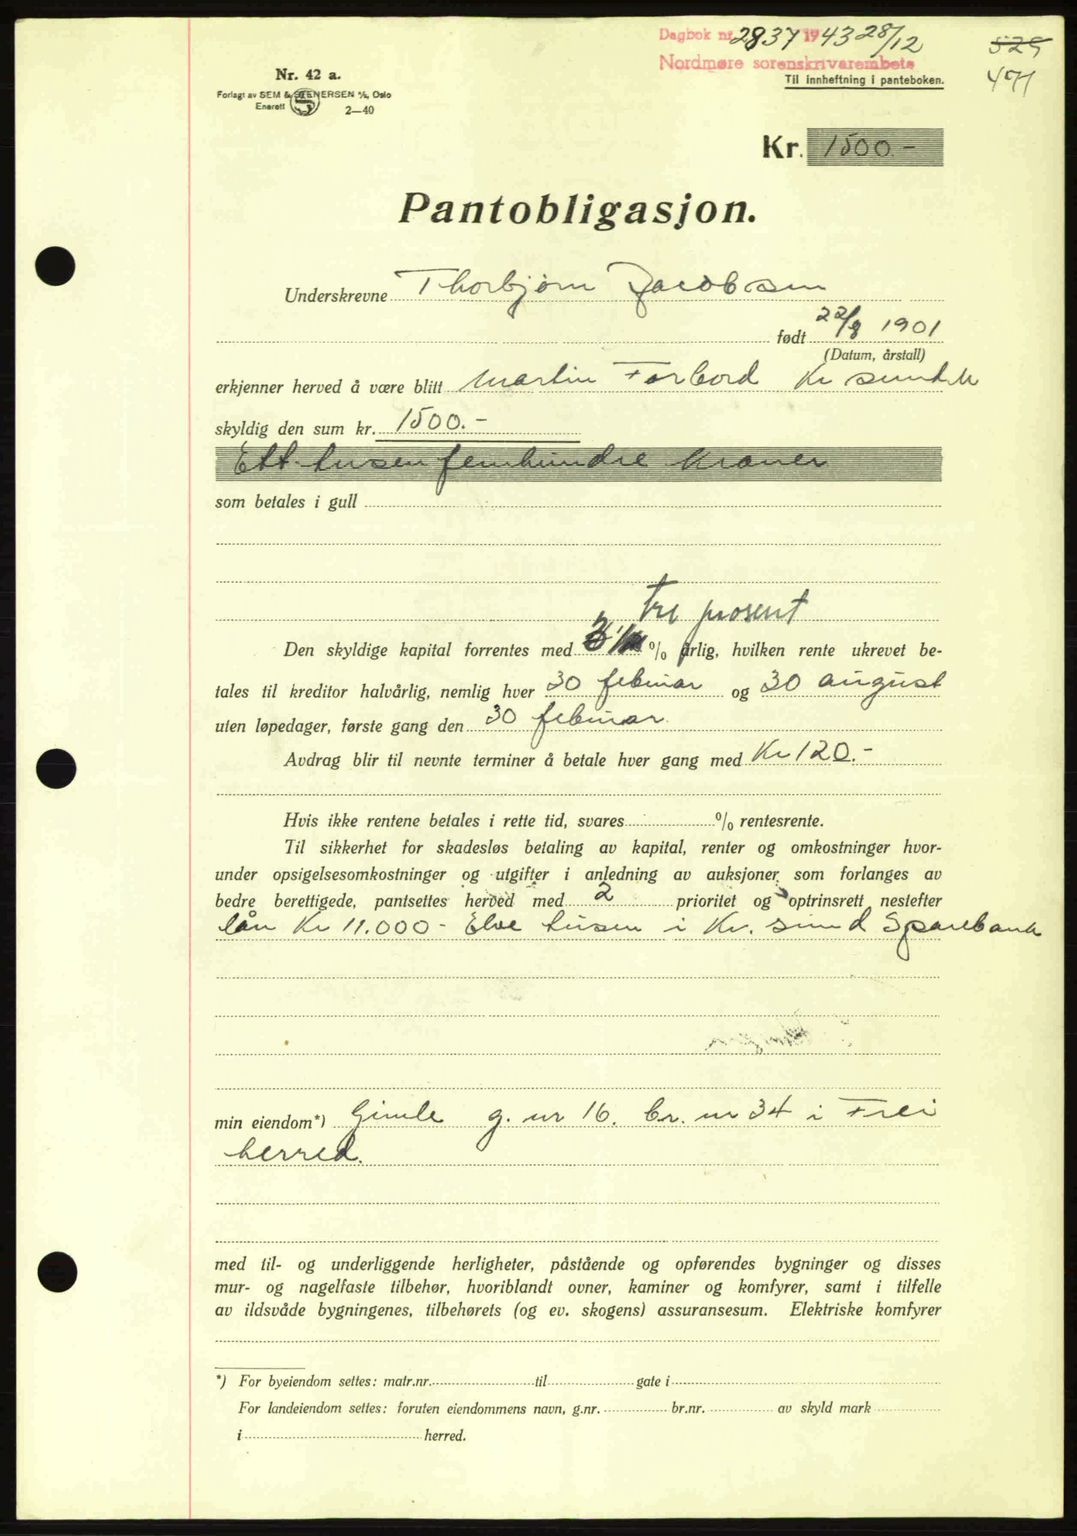 Dagbok nr. 2837 1943 28/12
Nordmøre sorenskrivarembete
Til innheftning i panteboken.
529
471
Nr. 42 a.
Forlagt av SEM & STENERSEN A/S, Oslo
Enerett S 2—40
Kr. 1500.-
Pantobligasjon.
Underskrevne Thorbjørn Jacobsen
født 22/8 1901
(Datum, årstall)
erkjenner herved å være blitt Martin Forbord Kr sund N
skyldig den sum kr. 1500.-
Ett tusen femhundre Kroner
som betales i gull
tre prosent
Den skyldige kapital forrentes med 3 % årlig, hvilken rente ukrevet be-
tales til kreditor halvårlig, nemlig hver 30 februar og 30 august
uten løpedager, første gang den 30 februar.
Avdrag blir til nevnte terminer å betale hver gang med Kr 120.-
Hvis ikke rentene betales i rette tid, svares % rentesrente.
Til sikkerhet for skadesløs betaling av kapital, renter og omkostninger hvor-
under opsigelsesomkostninger og utgifter i anledning av auksjoner som forlanges av
bedre berettigede, pantsettes herved med 2 prioritet og optrinsrett nestefter
lån Kr 11.000- Elve tusen i Kr. sund Sparebank
min eiendom*) Gimle g. nr 16. br. nr 34 i Frei
herred.
med til- og underliggende herligheter, påstående og opførendes bygninger og disses
mur- og nagelfaste tilbehør, hvoriblandt ovner, kaminer og komfyrer, samt i tilfelle
av ildsvåde bygningenes, tilbehørets (og ev. skogens) assuransesum. Elektriske komfyrer
*) For byeiendom settes: matr.nr. til gate i
For landeiendom settes: foruten eiendommens navn, g.nr. br.nr. av skyld mark
i herred.